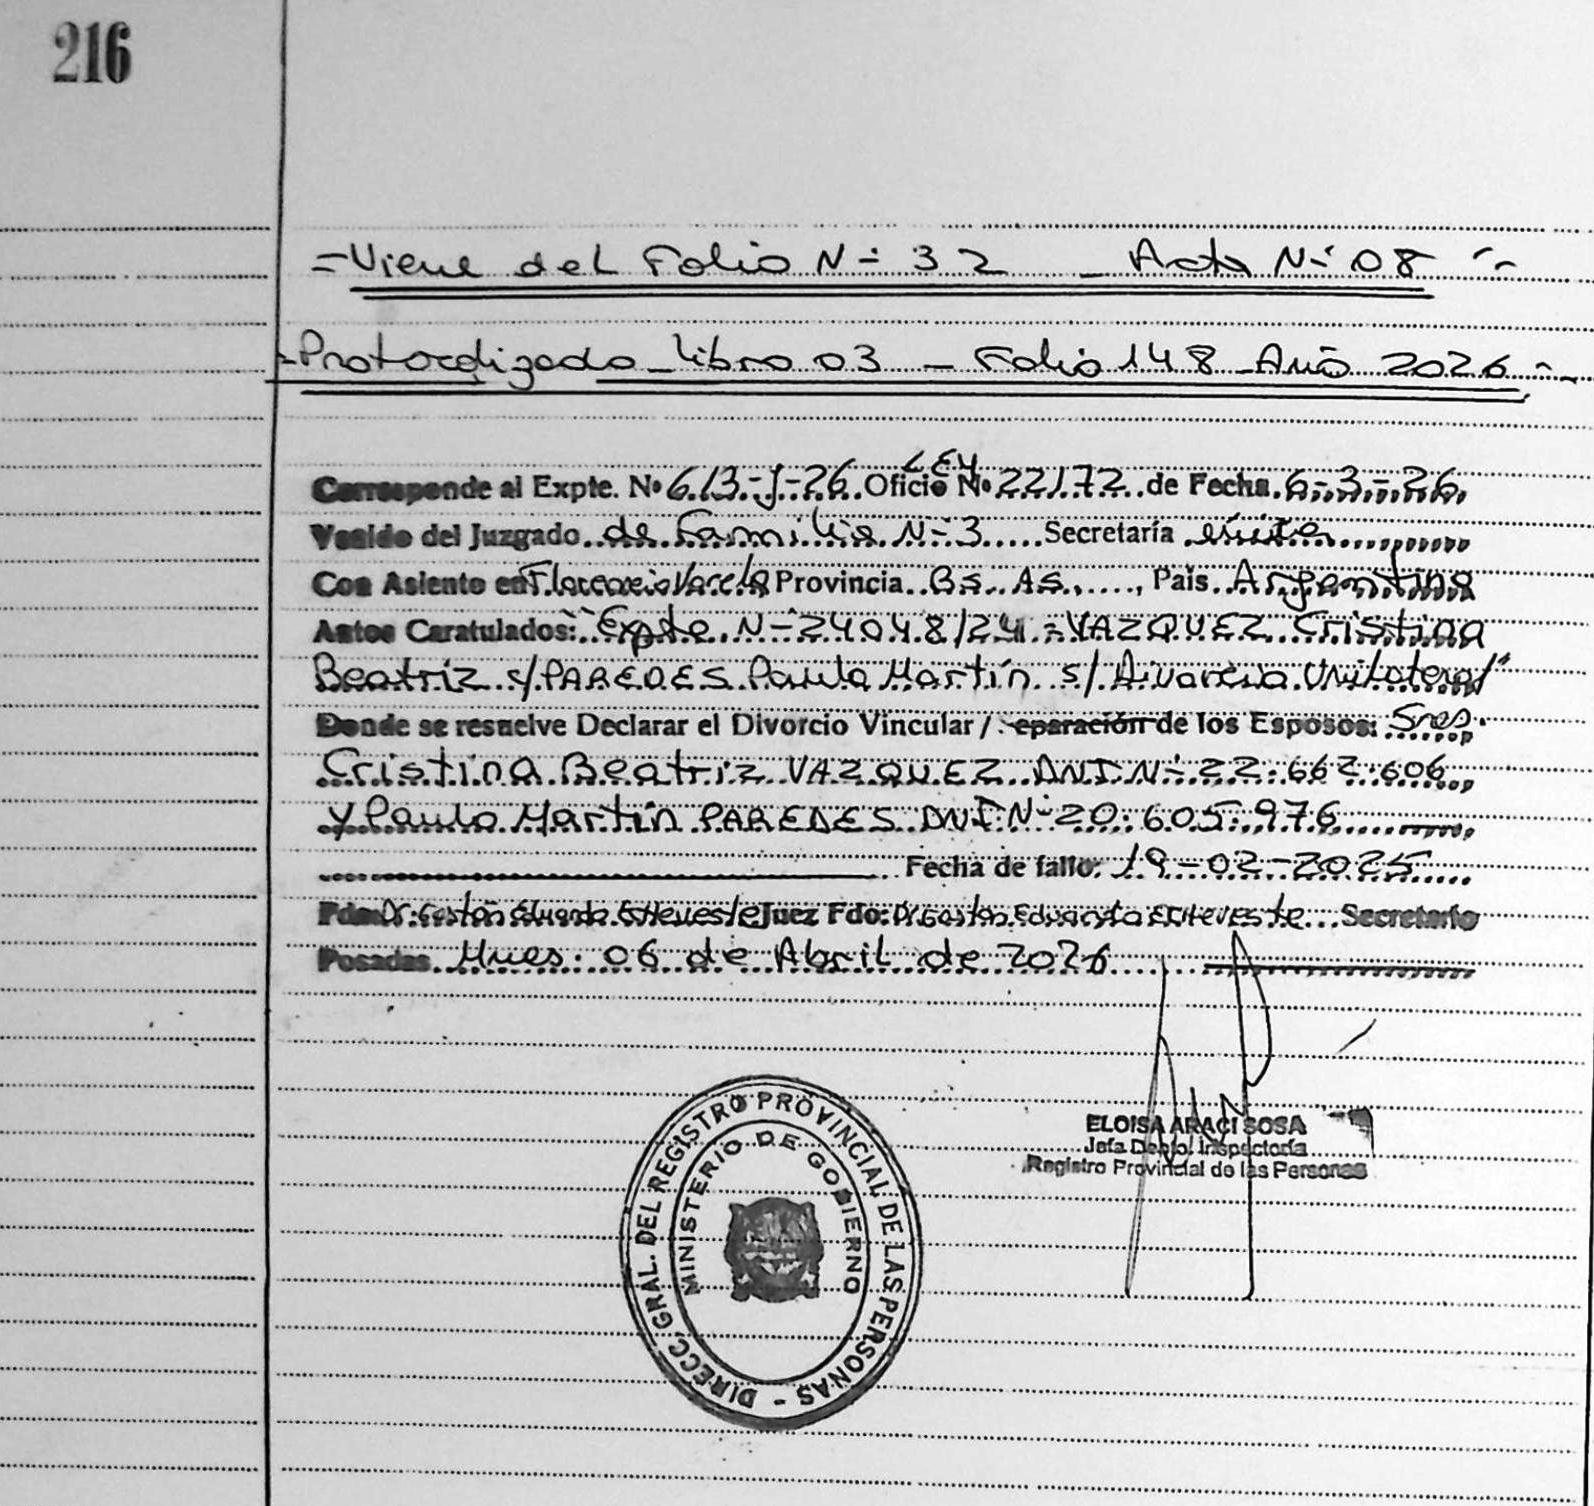 216
=Viene del Folio N- 32 - Acta N- 08 -
=Protocolizado - Libro 03 - Folio 148 - Año 2026 -
LEY
Corresponde al Expte. Nº 613-J-26 Oficio Nº 22172 de Fecha 6-3-26
Venido del Juzgado de Familia N-3 Secretaría única
Con Asiento en Florencio Varela Provincia Bs. As., País Argentina
Autos Caratulados: "Expte. N-24048/24 - VAZQUEZ Cristina
Beatriz s/PAREDES Paulo Martín s/ Unilateral"
Donde se resuelve Declarar el Divorcio Vincular / eparación de los Esposos: Sres.
Cristina Beatriz VAZQUEZ DNI N- 22.662.606
y Paulo Martín PAREDES DNI N- 20.605.976
Fecha de fallo: 19-02-2025
Fdo: Dr. Gastón Eduardo Juez Fdo: Dr. Gastón Eduardo Secretario
Posadas, Mnes. 06 de Abril de 2026
ELOISA ARACI SOSA
Jefa Depto. Inspectoría
Registro Provincial de las Personas
DIRECC. GRAL. DEL REGISTRO PROVINCIAL DE LAS PERSONAS -
MINISTERIO DE GOBIERNO